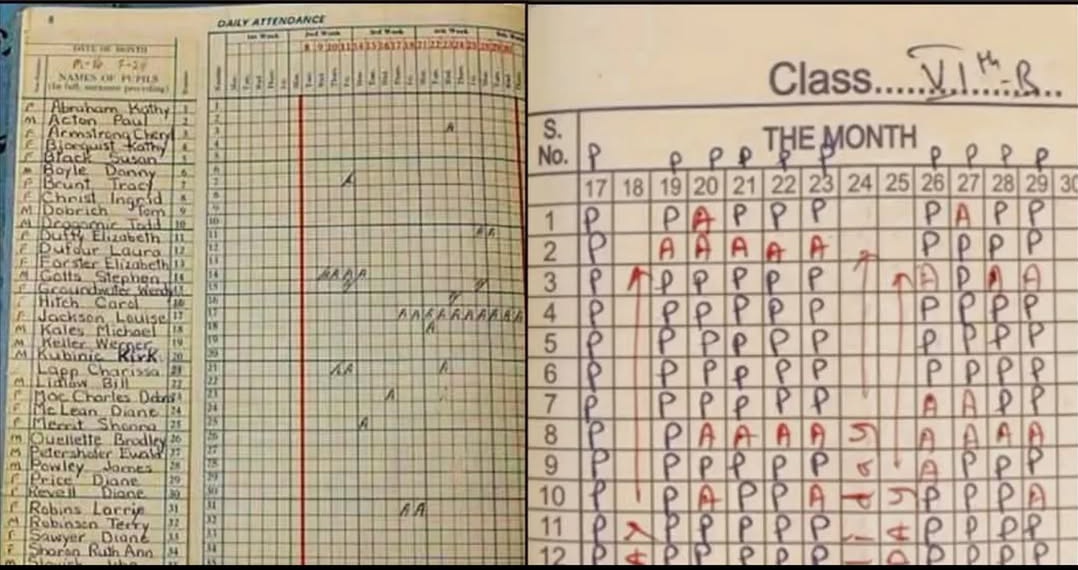 8
DAILY ATTENDANCE
1st Week 2nd Week 3rd Week 4th Week
DATE OF MONTH
8 9 10 11 14 15 16 17 18 21 22 23 24 25 28 29 30
NAMES OF PUPILS
(in full, surname preceding)
F Abraham Kathy 1
M Acton Paul 2
F Armstrong Cheryl 3
F Bjorquist Kathy 4
F Black Susan 5
M Boyle Danny 6
F Brunt Tracy 7
F Christ Ingrid 8
M Dobrich Tom 9
M Todd 10
F Duffy Elizabeth 11
F Dufour Laura 12
F Forster Elizabeth 13
M Gotts Stephen 14
F Groundwater Wendy 15
F Hitch Carol 16
F Jackson Louise 17
M Kales Michael 18
M Keller Werner 19
M Kubinic Kirk 20
Lapp Charissa 21
M Bill 22
F Mac Charles Debra 23
F McLean Diane 24
F Merrit Shonna 25
M Ouellette Bradley 26
M Petershofer Ewald 27
M Powley James 28
F Price Diane 29
F Revell Diane 30
F Robins Lorrie 31
M Robinson Terry 32
F Sawyer Diane 33
F Sharon Ruth Ann 34
Class....VIth-B
S. No. THE MONTH
P P P P P P P P P P
17 18 19 20 21 22 23 24 25 26 27 28 29 30
1 P P A P P P P A P P
2 P A A A A A P P P P
3 P P P P P P A P A A
4 P P P P P P P P P P
5 P P P P P P P P P P
6 P P P P P P P P P P
7 P P P P P P A A P P
8 P P A A A A A A A A
9 P P P P P P A P P P
10 P P A P P A P P P A
11 P P P P P P P P P P
12 P P P P P P P P P P